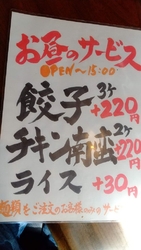 お昼のサービス
OPEN～15:00
餃子 3ケ +220円
チキン南蛮 2ケ +220円
ライス +30円
麺類をご注文のお客様のみのサービス